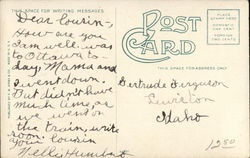 THIS SPACE FOR WRITING MESSAGES
Dear Cousin -
How are you
I am well. was
to Ottawa to-
day, Mama and
I went down.
But didn't have
much time, as
we went on
the train, write
soon
your cousin
Nellie
POST
CARD
PLACE
POSTAGE STAMP
HERE
DOMESTIC
ONE CENT
FOREIGN
TWO CENTS
THIS SPACE FOR ADDRESS ONLY
Gertrude Ferguson
Lewiston
Idaho